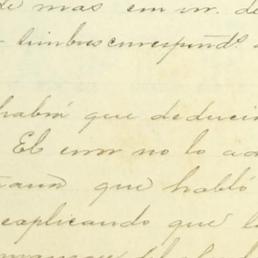 de mas em vr. de
timbres correspond.ˢ
habrá que deducir
El error no lo a
que habló
explicando que l